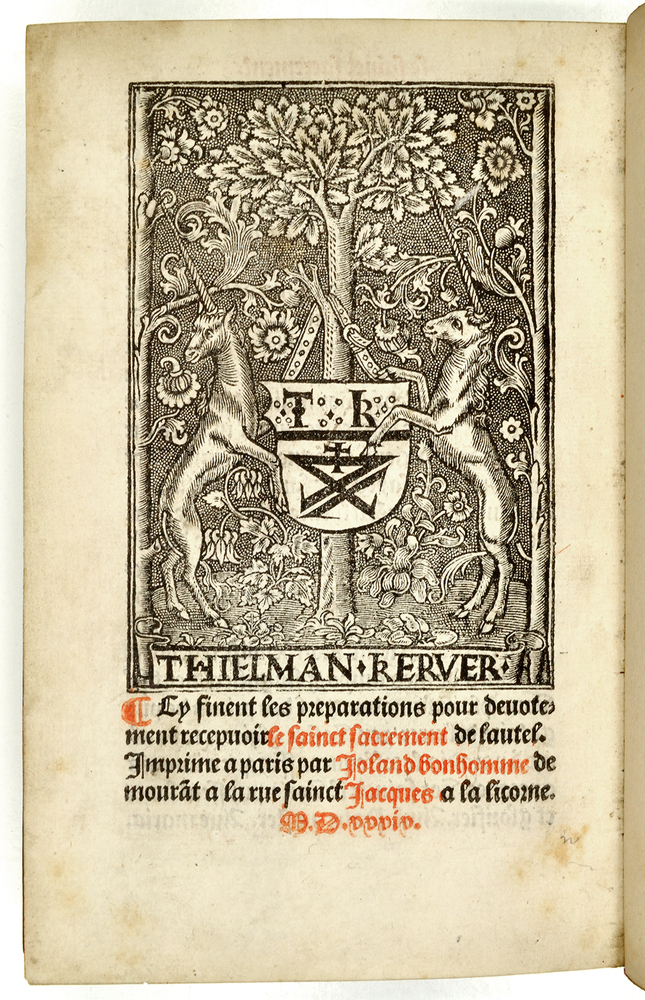 T K
THIELMAN·KERVER·
¶ Cy finent les preparations pour deuote⸗
ment recepuoir le sainct sacrement de lautel.
Imprime a paris par Joland bonhomme de
mourāt a la rue sainct Jacques a la licorne.
M.D.xxxiv.